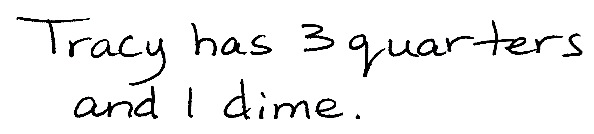 Tracy has 3 quarters
and 1 dime.